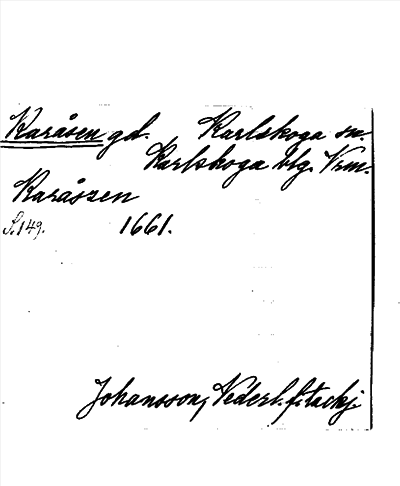 Karåsen gd. Karlskoga sn.
Karlskoga blg. Vrm.
Karåszen
S. 149. 1661.
Johansson, Nederl. f. tackj.